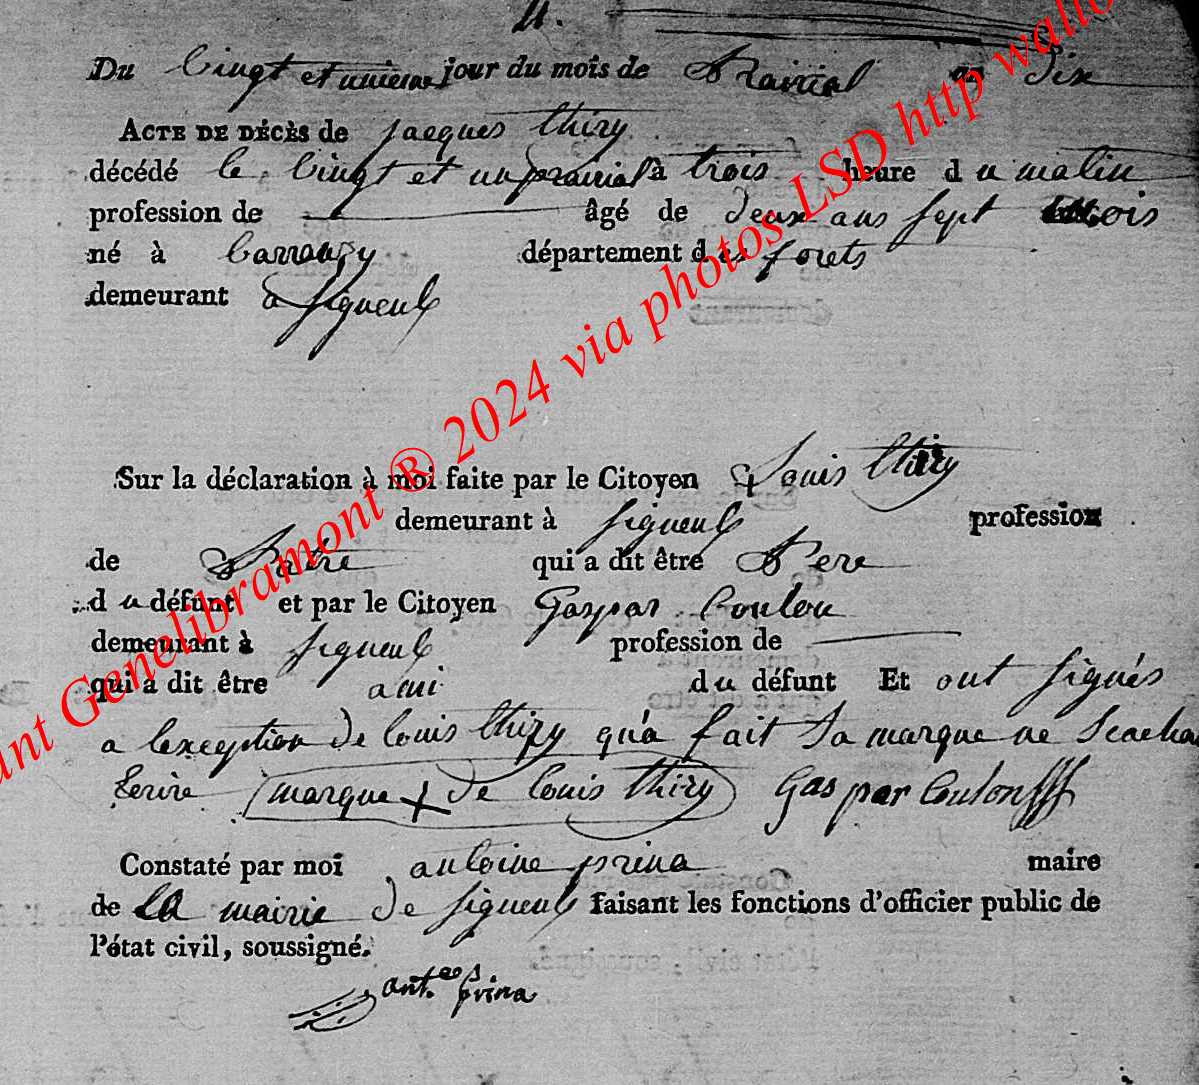 4.
Du Vingt et unieme jour du mois de Prairial an Dix
ACTE DE DÉCÈS de jacques thiry
décédé le Vingt et un prairial à trois heure du matin
profession de — âgé de deux ans sept mois
né à département des forets
demeurant a Sigeuls
Sur la déclaration à moi faite par le Citoyen Louis thiry
demeurant à Sigeuls profession
de Patre qui a dit être Pere
du défunt et par le Citoyen Gaspar Coulon
demeurant à Sigeuls profession de —
qui a dit être ami du défunt Et ont signés
a lexception de louis thiry qu'a fait Sa marque ne Scachant
Ecrire marque + de louis thiry Gaspar Coulon
Constaté par moi antoine prina maire
de la mairie de Sigeuls faisant les fonctions d'officier public de
l'état civil, soussigné.
ant.ne prina
ant Genelibramont ® 2024 via photos LSD http wallo